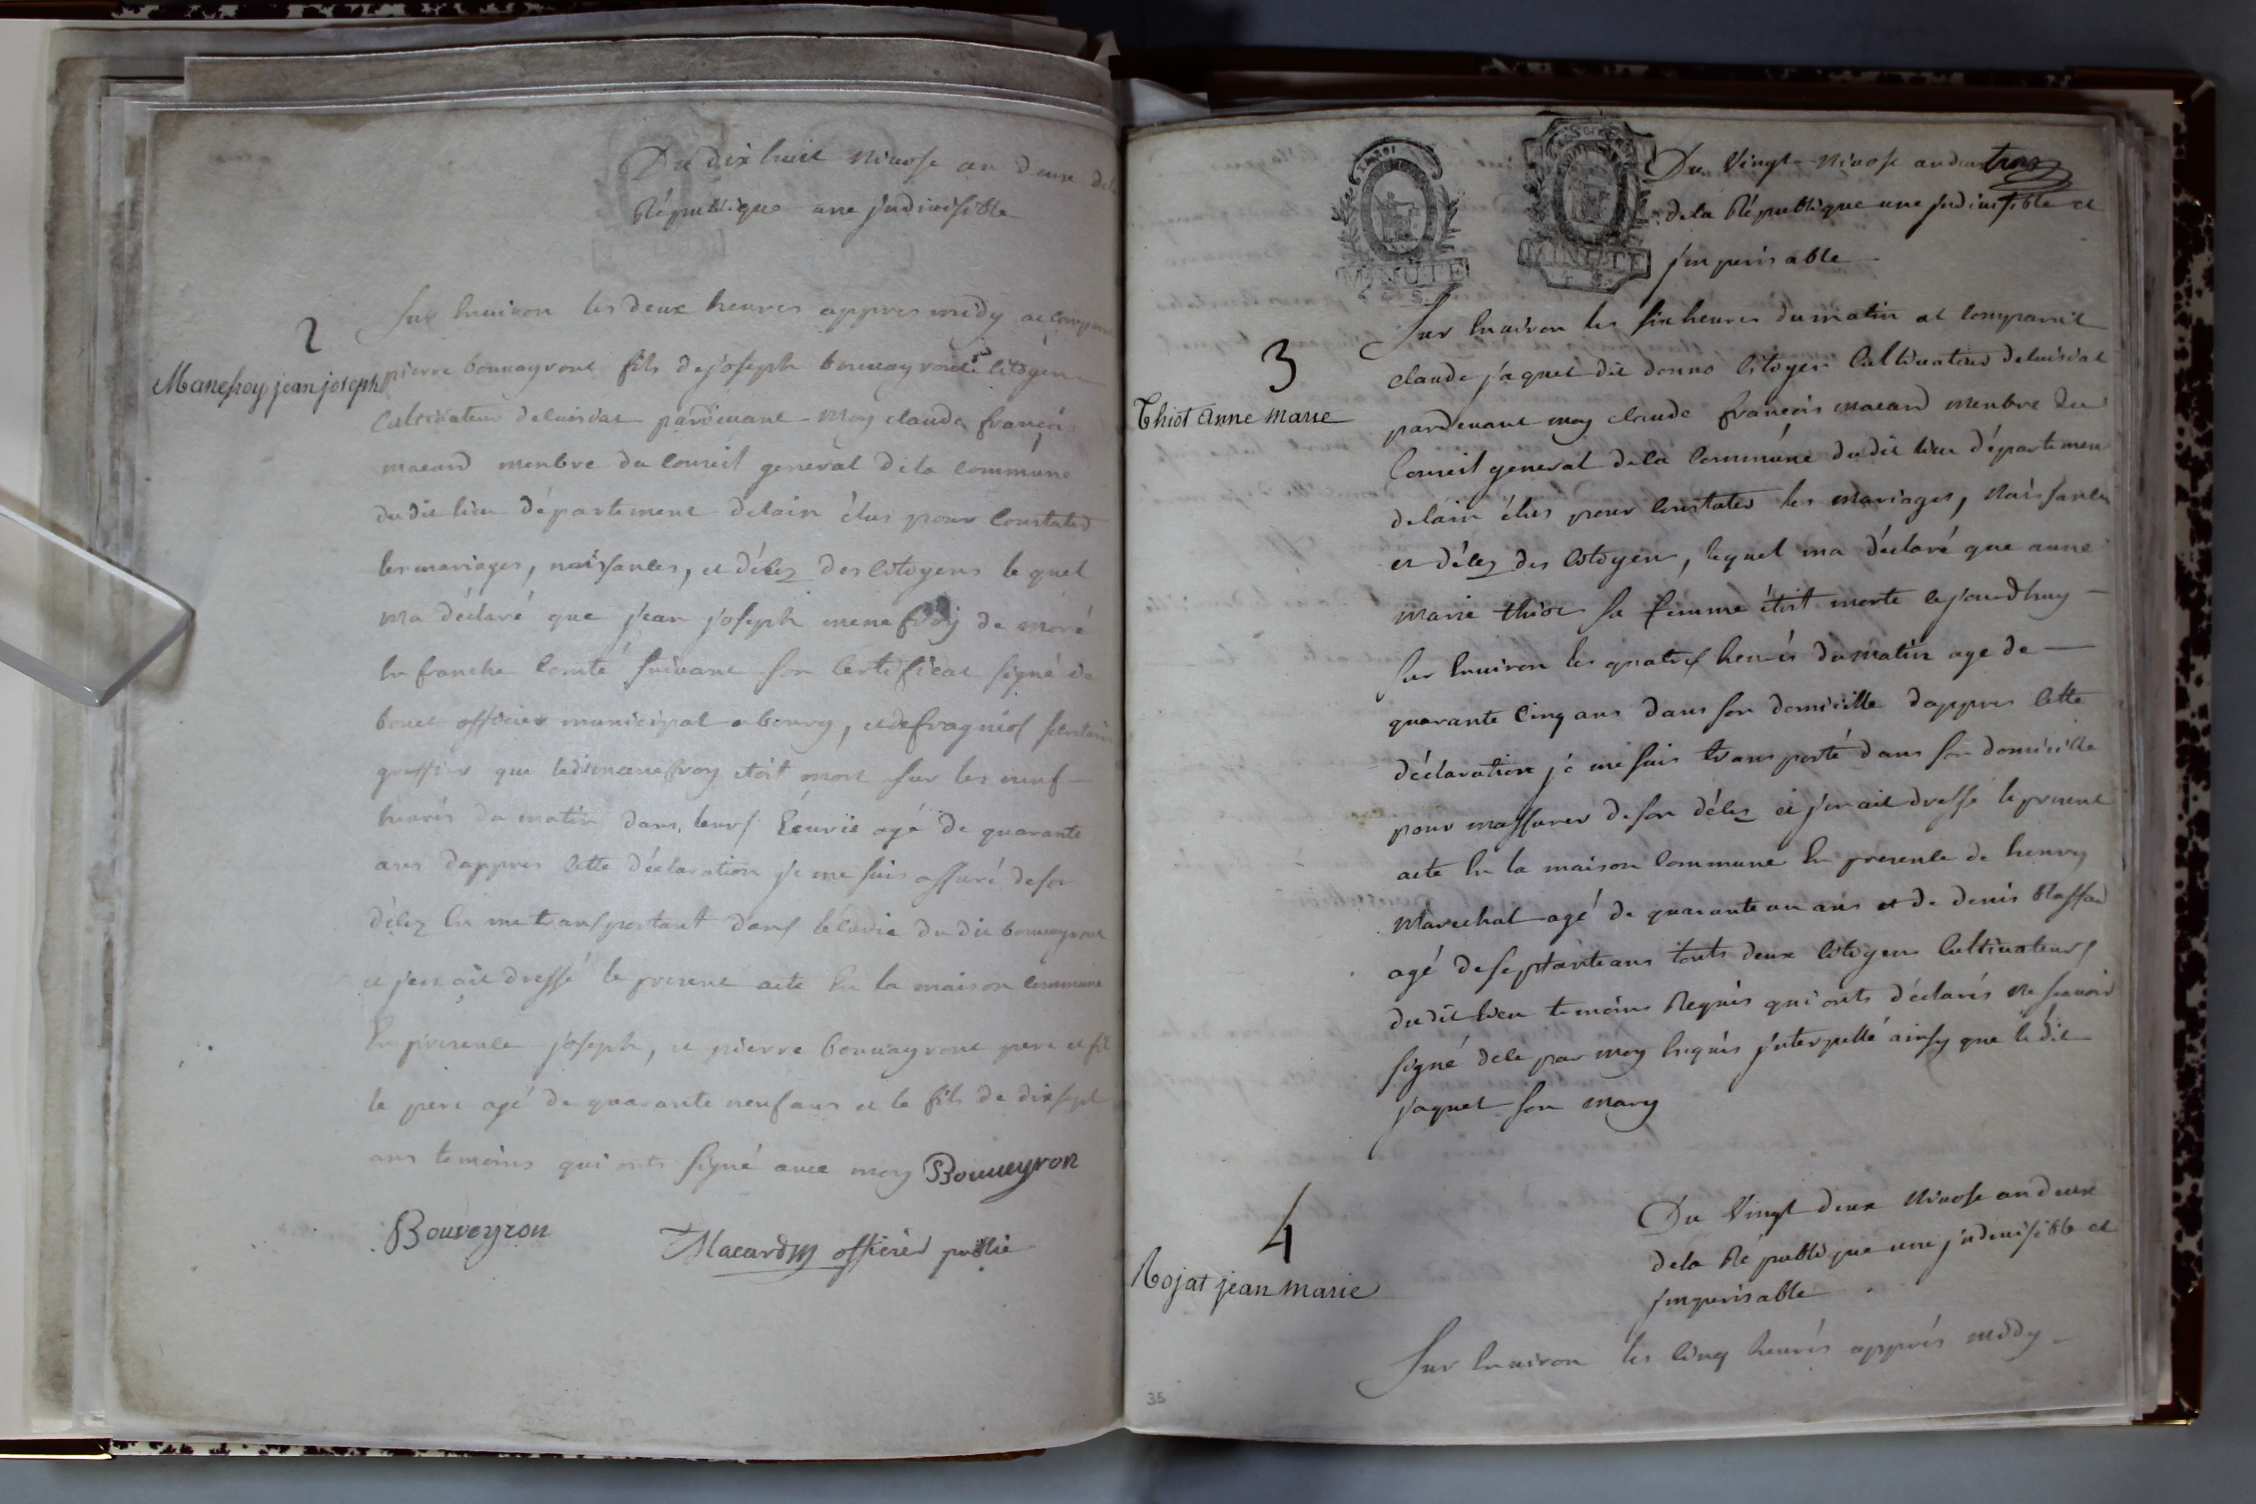 Du dix huit Nivose an deux dela
République une jndivisible
2
Manefroy jean joseph
Sur Environ les deux heures appres midy at comparu
pierre bouvayront fils de joseph bouvayront citoyen
Cultivateur deluisiat pardevant Moy claude françois
macard menbre du Conseil general dela commune
dudit lieu département delain élus pour Constated
les mariages, naissances, et décez des Citoyens le quel
ma déclaré que jean joseph menefroy de moré
En franche Comté suivant son Certificat signé de
bouet officier municipal abourg, et de fragniof
greffier que ledit manefroy étoit mort sur les neuf
heurés du matin dans leurs Ecurië agé de quarante
ans dappres Cette déclaration je me suis assuré de son
décez En me transportant dans lecurie du dit bouvayront
et jen ait dressé le present acte En la maison Commune
En presence joseph, et pierre bouvayront pere et fil
le pere agé de quarante neuf ans et le fils de dixsept
ans temoins qui onts signé avec moy Bouveyron
Bouveyron Macard officier publie
MINUTE
MINUTE
Du Vingt Nivose an deux trois
dela République une jndivisible et
jmperisable
3
Thiot anne marie
Sur Environ les six heures du matin at Comparut
claude jaquet dit donno Citoyen Cultivateur deluisiat
pardevant moy claude françois macard menbre du
Conseil general dela Commune dudit lieu départemen
delain élus pour Constated les mariages, Naissances
et décez des Citoyen, lequel ma déclaré que anne
marie thiot sa femme étoit morte cejourdhuy
sur Environ les quatres heurés du matin agé de
quarante Cinq ans dans son domicille dappres Cette
déclaration jé me suis transporté dans son domicille
pour massurer de son décez et jen ait dressé le present
acte En la maison Commune En presence de henry
Marechal agé de quarante un ans et de denis Raffad
agé de septante ans touts deux Citoyens Cultivateurs
dudit lieu temoins Requis qui onts déclarés Ne scavoir
signé dela par moy Enquis jnterpellé ainsy que le dit
jaquet son mary
4
Rojat jean marie
Du Vingt deux Nivose an deux
dela République une jndivisible et
jmperisable
Sur Environ les Cinq heurés apprés midy
35